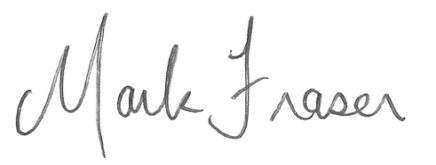 Mark Fraser